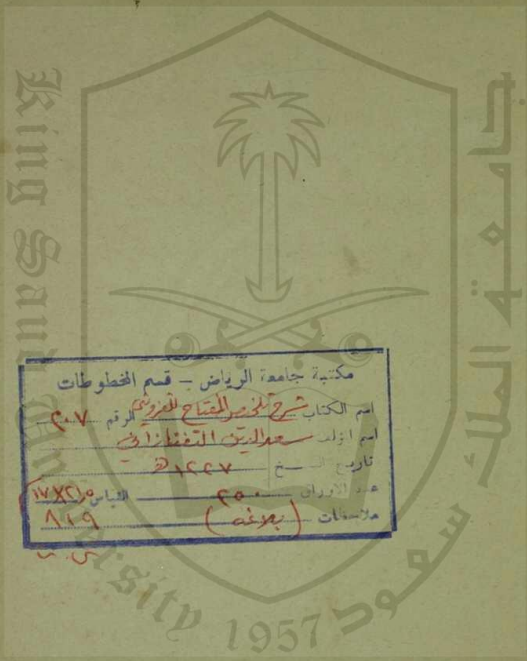 King Saud University
جامعة الملك سعود
مكتبة جامعة الرياض - قسم المخطوطات
اسم الكتاب شرح تلخيص المفتاح للقزويني الرقم ٢٠٧
اسم المؤلف سعد الدين التفتازاني
تاريخ النسخ ١٢٢٧ هـ
عدد الأوراق ٢٥٠ القياس
ملاحظات (بلاغة) ٨١٩
1957